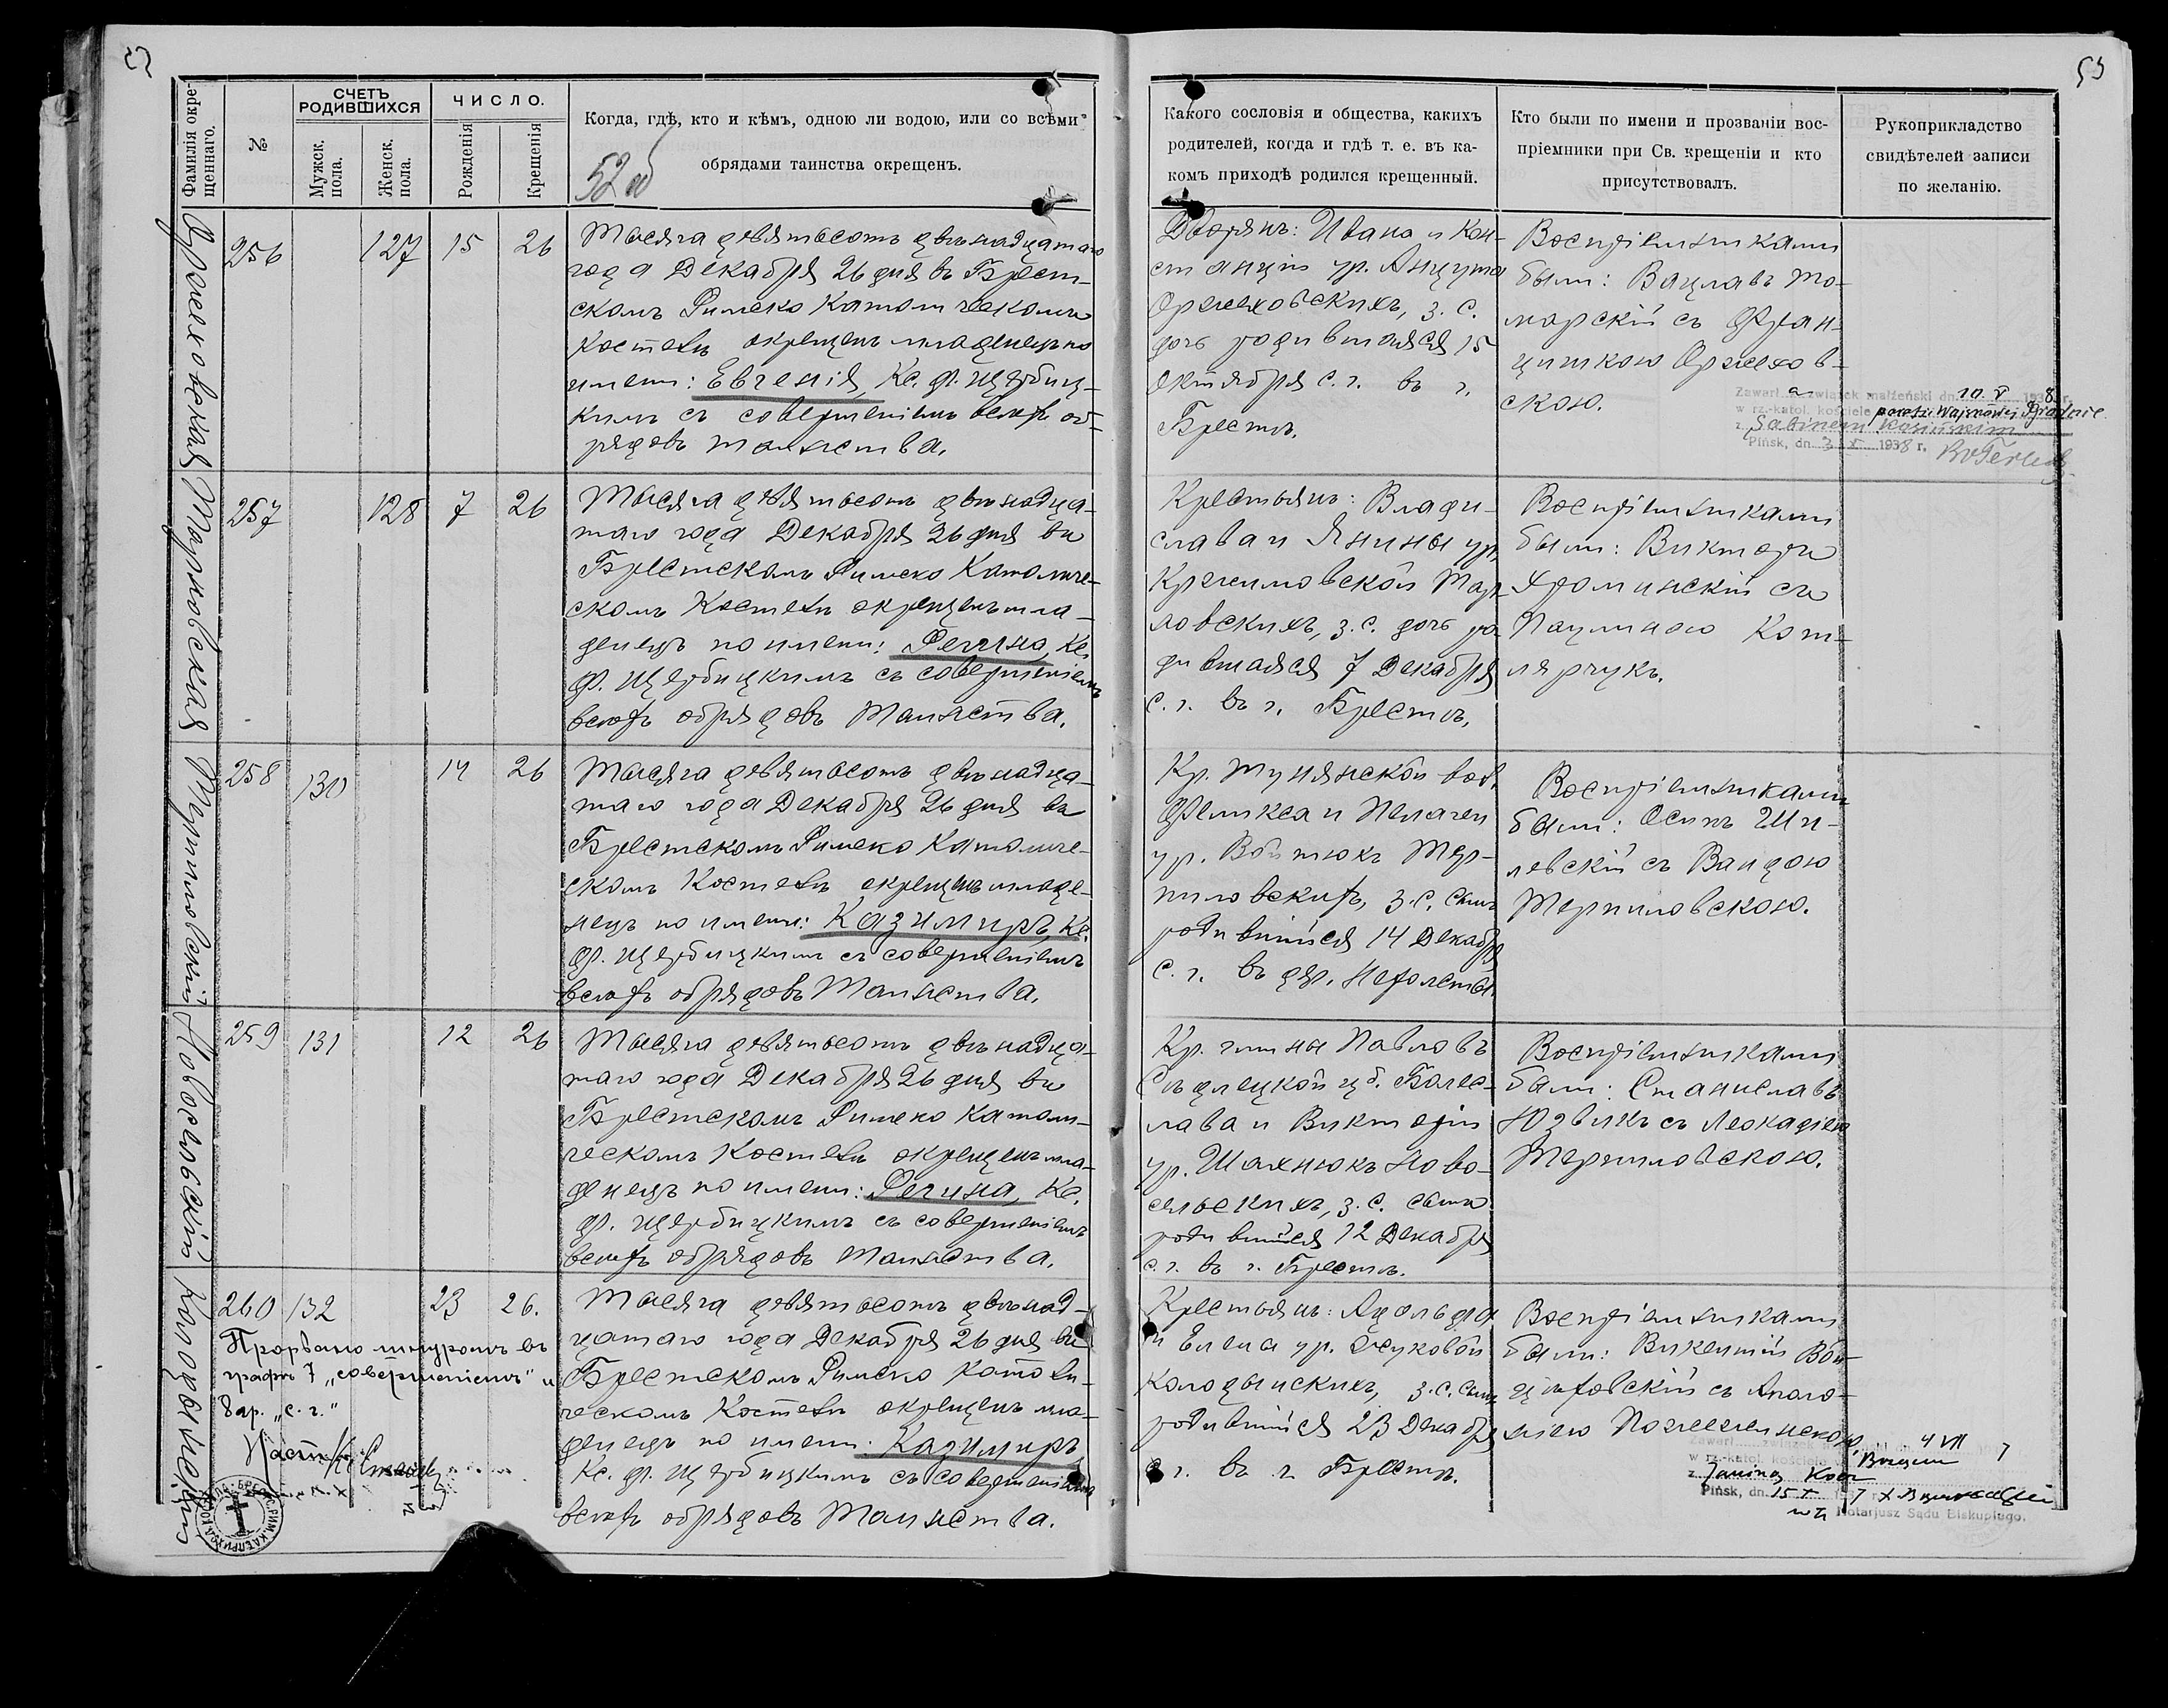 53
Фамилія окре-
щеннаго.
№
СЧЕТЪ
РОДИВШИХСЯ
Мужск.
пола.
Женск.
пола.
ЧИСЛО.
Рожденія
Крещенія
Когда, гдѣ, кто и кѣмъ, одною ли водою, или со всѣми
обрядами таинства окрещенъ.
52 об
Оржеховская
256
127
15
26
Тысяча девятьсотъ двѣнадцатаго
года Декабря 26 дня въ Брест-
скомъ Римско Католическомъ
Костелѣ окрещенъ младенецъ по
имени: Евгенія, Кс. Ф. Щербиц-
кимъ съ совершеніемъ всѣхъ об-
рядовъ таинства.
Тарловская
257
128
7
26
Тысяча девятьсотъ двѣнадца-
таго года Декабря 26 дня въ
Брестскомъ Римско Католиче-
скомъ Костелѣ окрещенъ мла-
денецъ по имени: Регина, Кс.
Ф. Щербицкимъ съ совершеніемъ
всѣхъ обрядовъ Таинства.
Терпиловскій
258
130
14
26
Тысяча девятьсотъ двѣнадца-
таго года Декабря 26 дня въ
Брестскомъ Римско Католиче-
скомъ Костелѣ окрещенъ младе-
нецъ по имени: Казимиръ, Кс.
Ф. Щербицкимъ съ совершеніемъ
всѣхъ обрядовъ Таинства.
Новосельскій
259
131
12
26
Тысяча девятьсотъ двѣнадца-
таго года Декабря 26 дня въ
Брестскомъ Римско Католи-
ческомъ Костелѣ окрещенъ мла-
денецъ по имени: Регина, Кс.
Ф. Щербицкимъ съ совершеніемъ
всѣхъ обрядовъ Таинства.
Колодынскій
260
132
23
26.
Тысяча девятьсотъ двѣнад-
цатаго года Декабря 26 дня въ
Брестскомъ Римско Католи-
ческомъ Костелѣ окрещенъ мла-
денецъ по имени: Казимиръ
Кс. Ф. Щербицкимъ съ совершеніемъ
всѣхъ обрядовъ Таинства.
Прорвано шнуромъ въ
графѣ 7 „совершеніемъ" и
8 гр. „с. г."
53
Какого сословія и общества, какихъ
родителей, когда и гдѣ т. е. въ ка-
комъ приходѣ родился крещенный.
Кто были по имени и прозваніи вос-
пріемники при Св. крещеніи и кто
присутствовалъ.
Рукоприкладство
свидѣтелей записи
по желанію.
Дворянъ: Ивана и Кон-
станціи ур. Анцута
Оржеховскихъ, з. с.
дочь родившаяся 15
Октября с. г. въ г.
Брестѣ.
Воспріемниками
были: Вацлавъ То-
марскій съ Фран-
цишкою Оржехов-
скою.
Zawarł a związek małżeński dn. 10 V 1938 r.
w rz.-katol. kościele
z Sabinem Kosińskim
Pińsk, dn. 3 X 1938 r.
Крестьянъ: Влади-
слава и Янины ур.
Кржимовской Тар-
ловскихъ, з. с. дочь ро-
дившаяся 7 Декабря
с. г. въ г. Брестѣ.
Воспріемниками
были: Викторъ
Хроминскій съ
Паулиною Кот-
лярчукъ.
Кр. Тунянской вол.
Феликса и Пелагеи
ур. Войтюкъ Тер-
пиловскихъ, з. с. сынъ
родившійся 14 Декабря
с. г. въ дер.
Воспріемниками
были: Осипъ Ши-
левскій съ Вандою
Терпиловскою.
Кр. гмины Павловъ
Сѣдлецкой губ. Болес-
лава и Викторіи
ур. Шахнюкъ Ново-
сельскихъ, з. с. сынъ
родившійся 12 Декабря
с. г. въ г. Брестѣ.
Воспріемниками
были: Станиславъ
Юзвикъ съ Леокадіею
Терпиловскою.
Крестьянъ: Адольфа
и Елена ур. Жуковой
Колодынскихъ, з. с. сынъ
родившійся 23 Декабря
с. г. въ г. Брестѣ.
Воспріемниками
были: Викентій Вой-
цѣховскій съ Аполо-
ніею
4 VII 7
z Janiną
Pińsk, dn. 15 X 1937 r.
Notarjusz Sądu Biskupiego.